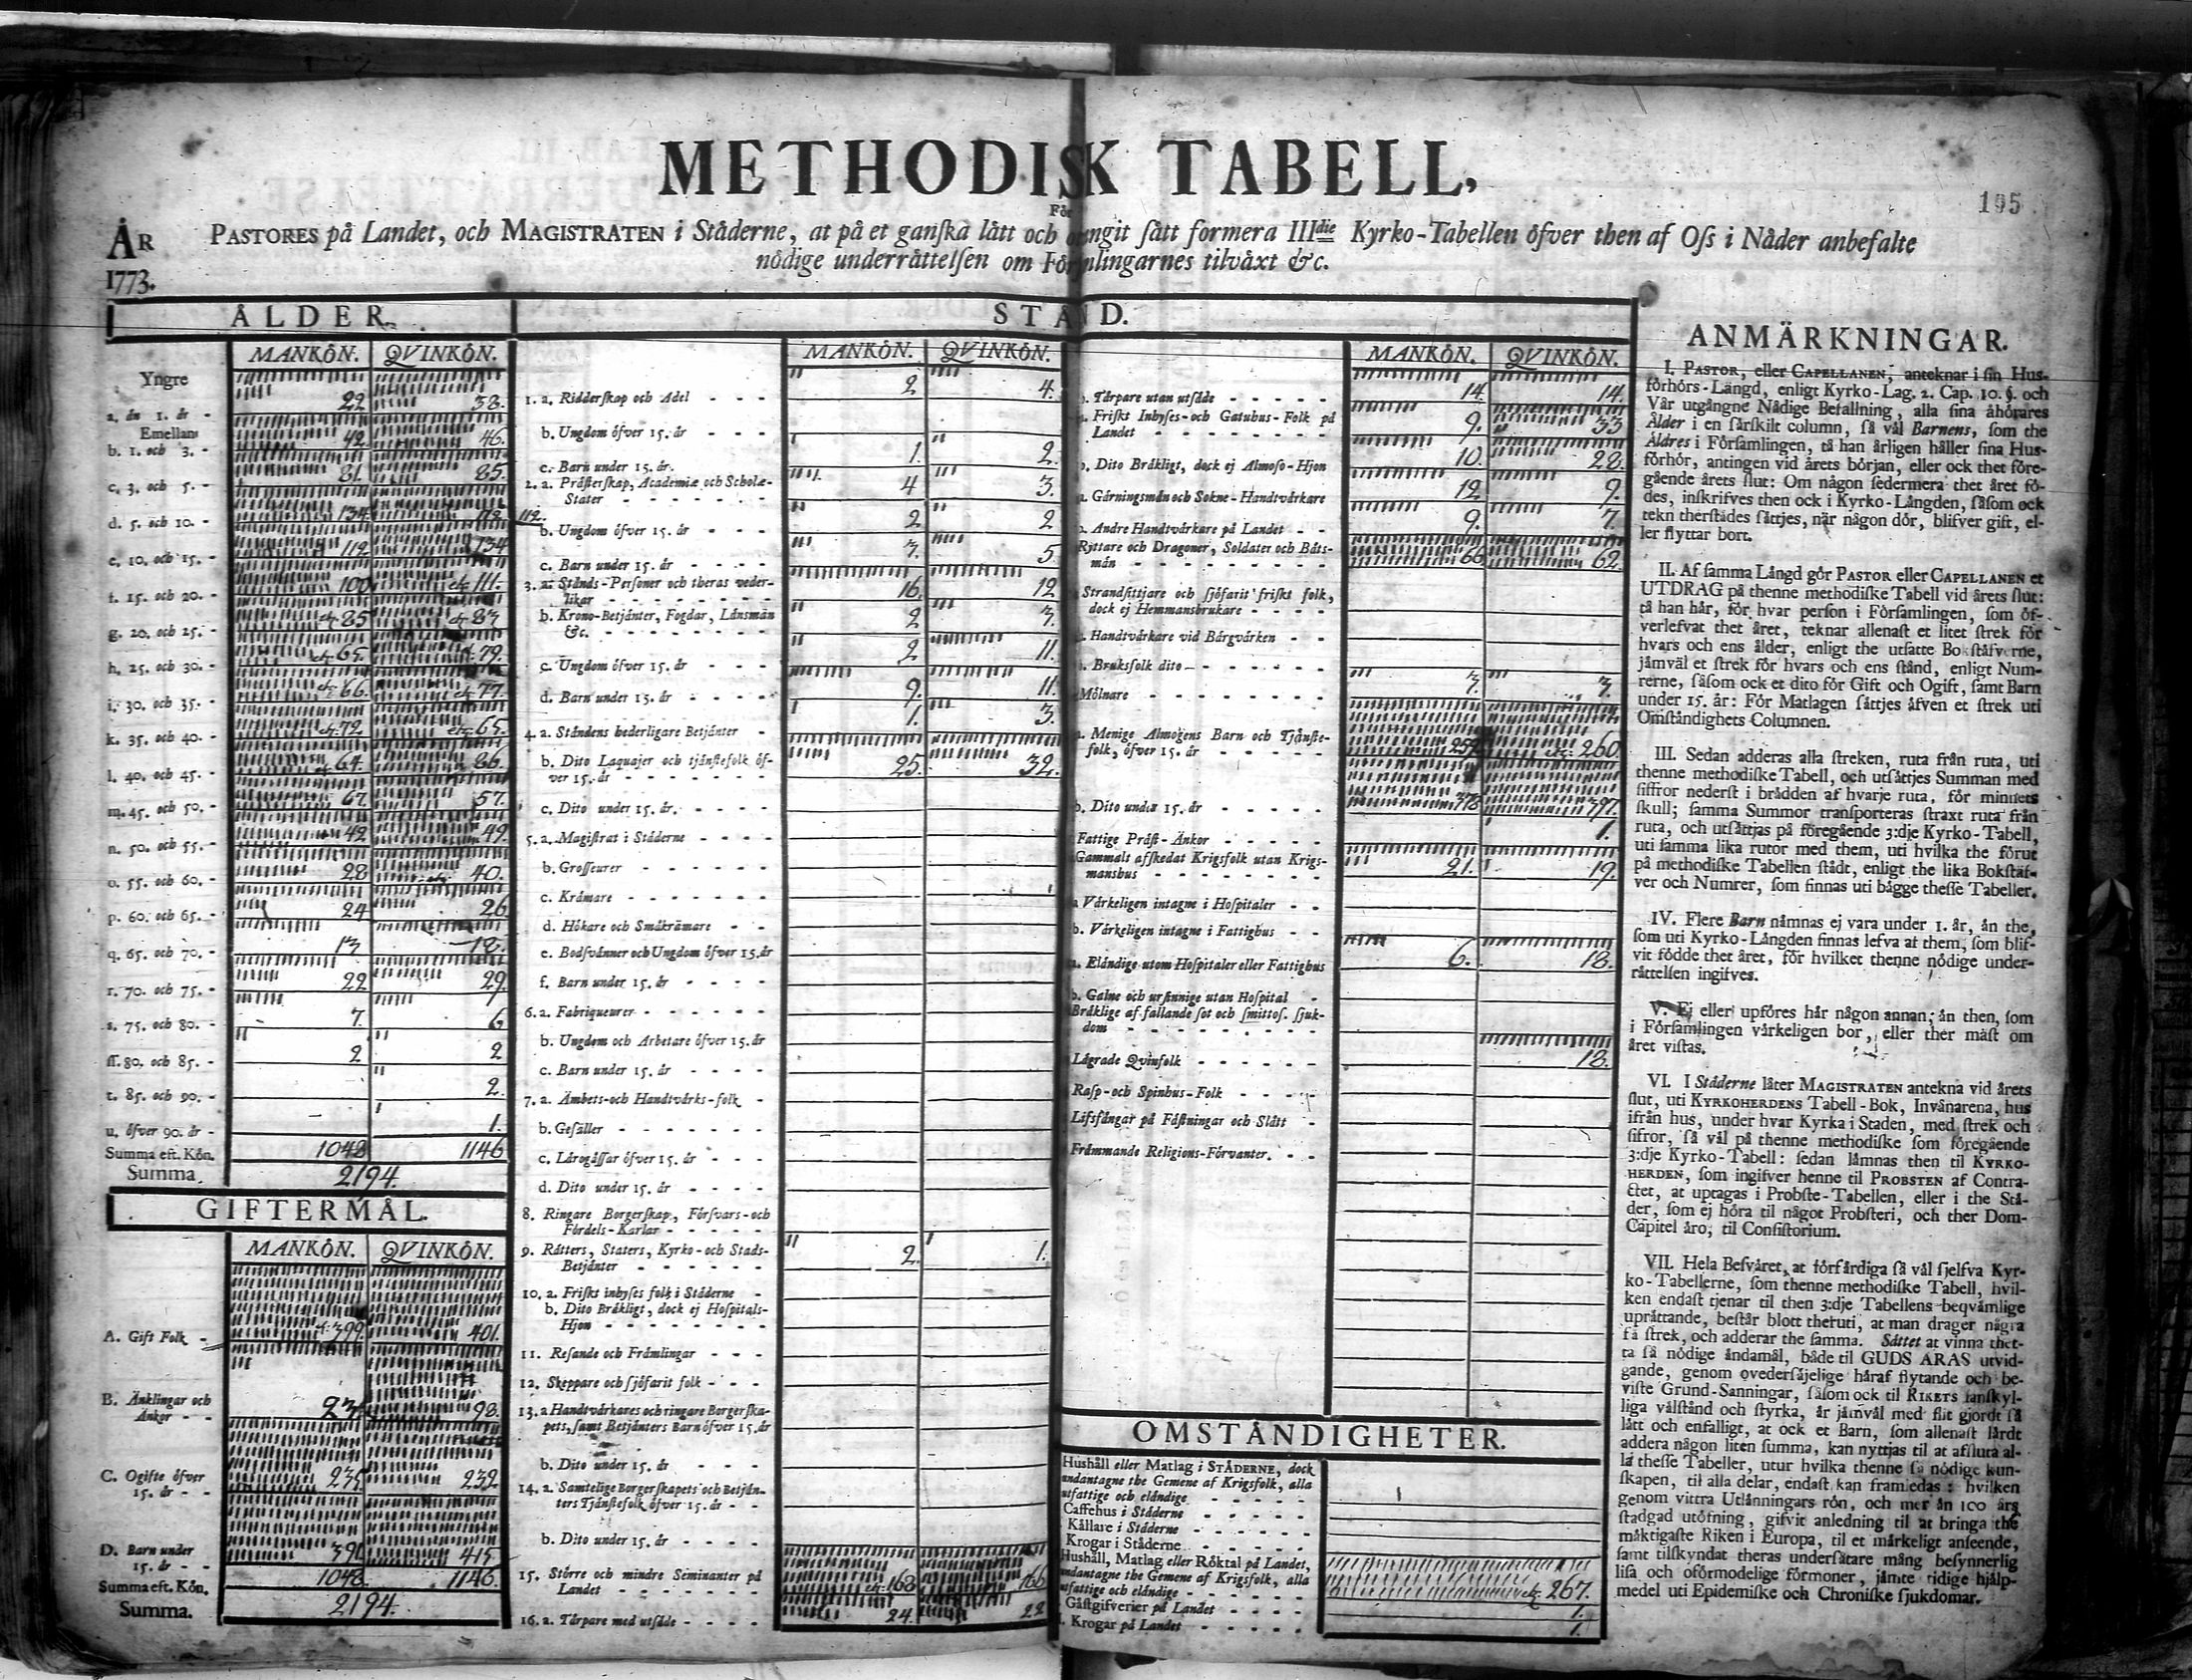 METHODISK TABELL,
195
För
ÅR
1773.
PASTORES på Landet, och MAGISTRATEN i Ståderne, at på et ganska lått och sått formera IIIdie Kyrko-Tabellen ôfver then af Oss i Nåder anbefalte
nôdige underråttelsen om tilvåxt &c.
ÅLDER.
STÅND.
MANKÔN. QVINKÔN.
Yngre
a. ån 1. år - 22 38.
Emellan
b. 1. och 3. - 42. 46.
c. 3. och 5. - 81. 85.
d. 5. och 10. - 134 112.
e. 10. och 15. - 112 134
f. 15. och 20. - 100 111.
g. 20. och 25. - 85 83
h. 25. och 30. - 65. 79.
i. 30. och 35. - 66. 77.
k. 35. och 40. - 72 65.
l. 40. och 45. - 64. 86.
m. 45. och 50. - 67. 57.
n. 50. och 55. - 42 49.
o. 55. och 60. - 28 40.
p. 60. och 65. - 24 26
q. 65. och 70. - 13 18.
r. 70. och 75. - 22 29.
s. 75. och 80. - 7. 6
ss. 80. och 85. - 2 2
t. 85. och 90. - 2.
u. ôfver 90. år - 1.
Summa eft. Kôn. 1048 1146
Summa. 2194.
GIFTERMÅL.
MANKÔN. QVINKÔN.
A. Gift Folk - 399. 401.
B. Änklingar och
Änkor - - 23. 98.
C. Ogifte ôfver
15. år - - 235. 232.
D. Barn under
15. år - - 391. 415.
Summa eft. Kôn. 1048. 1146.
Summa. 2194.
MANKÔN. QVINKÔN.
1. a. Ridderskap och Adel - - - 2 4.
b. Ungdom ôfver 15. år - - -
c. Barn under 15. år. 1. 2.
2. a. Pråsterskap, Academiæ och Scholæ-
Stater - - - - - - 4 3.
b. Ungdom ôfver 15. år - - - 2 2
c. Barn under 15. år - - - - 3. 5.
3. a. Stånds-Personer och theras veder-
likar - - - - - - 16. 12
b. Krono-Betjånter, Fogdar, Lånsmån
&c. - - - - - - - 2 3.
c. Ungdom ôfver 15. år - - - 2 11.
d. Barn under 15. år - - - - 9. 11.
4. a. Ståndens hederligare Betjånter - 1. 3.
b. Dito Laquajer och tjånstefolk ôf-
ver 15. år - - - - - - - 25. 32.
c. Dito under 15. år. - - - -
5. a. Magistrat i Ståderne - - - -
b. Grosseurer - - - - - -
c. Kråmare - - - - - -
d. Hôkare och Småkrämare - -
e. Bodsvånner och Ungdom ôfver 15. år
f. Barn under 15. år - - - -
6. a. Fabriqueurer - - - - - -
b. Ungdom och Arbetare ôfver 15. år
c. Barn under 15. år - - - -
7. a. Ämbets-och Handtvårks-folk -
b. Gesåller - - - - - - -
c. Lårogåssar ôfver 15. år - - -
d. Dito under 15. år - - - -
8. Ringare Borgerskap, Fôrsvars-och
Fôrdels-Karlar - - - - -
9. Råtters, Staters, Kyrko-och Stads-
Betjånter - - - - - - - 2. 1.
10. a. Friskt inhyses folk i Ståderne -
b. Dito Bråkligt, dock ej Hospitals-
Hjon - - - - - - - -
11. Resande och Fråmlingar - - -
12. Skeppare och sjôfarit folk - - -
13. a Handtvårkares och ringare Borgerska-
pets, samt Betjånters Barn ôfver 15. år
b. Dito under 15. år - - - -
14. a. Samtelige Borgerskapets och Betjån-
ters Tjånstefolk ôfver 15. år - -
b. Dito under 15. år - - - -
15. Stôrre och mindre Seminanter på
Landet - - - - - - - 168 166
16. a. Tårpare med utsåde - - - - 24. 22
MANKÔN. QVINKÔN.
b. Tårpare utan utsåde - - - - - 14. 14.
Friskt Inhyses-och Gatuhus-Folk på
Landet - - - - - - - - 9. 33
Dito Bråkligt, dock ej Almoso-Hjon 10. 28.
Gårningsmån och Sokne-Handtvårkare 12 9.
b. Andre Handtvårkare på Landet - - 9. 7.
Ryttare och Dragoner, Soldater och Båts-
mån - - - - - - - - - 66 62.
Strandsittjare och sjôfarit friskt folk,
dock ej Hemmansbrukare - - - -
Handtvårkare vid Bårgvårken - -
b. Bruksfolk dito - - - - - - -
Môlnare - - - - - - - - 3. 3.
a. Menige Almogens Barn och Tjånste-
folk, ôfver 15. år - - - - - 260
b. Dito under 15. år - - - - - 378 397.
Fattige Pråst-Änkor - - - - - 1.
Gammalt afskedat Krigsfolk utan Krigs-
manshus - - - - - - - - 21. 19.
a Vårkeligen intagne i Hospitaler - -
b. Vårkeligen intagne i Fattighus - -
a. Elåndige utom Hospitaler eller Fattighus 6. 18.
b. Galne och ursinnige utan Hospital -
Bråklige af fallande sot och smittos. sjuk-
dom - - - - - - - - -
Lågrade Qvinfolk - - - - - - 18.
Rasp-och Spinhus-Folk - - - -
Lifsfångar på Fåstningar och Slått -
Fråmmande Religions-Fôrvanter. - -
OMSTÅNDIGHETER.
Hushåll eller Matlag i STÅDERNE, dock
undantagne the Gemene af Krigsfolk, alla
utfattige och elåndige - - - - -
Caffehus i Ståderne - - - - -
Kållare i Ståderne - - - - - -
Krogar i Ståderne - - - - - -
Hushåll, Matlag eller Rôktal på Landet,
undantagne the Gemene af Krigsfolk, alla
utfattige och elåndige - - - - - 267.
Gåstgifverier på Landet - - - - 1.
Krogar på Landet - - - - - 1.
ANMÄRKNINGAR.
I. PASTOR, eller CAPELLANEN, anteknar i sin Hus-
fôrhôrs-Långd, enligt Kyrko-Lag. 2. Cap. 10. §. och
Vår utgångne Nådige Befallning, alla sina åhôrares
Ålder i en sårskilt column, så vål Barnens, som the
Äldres i Fôrsamlingen, tå han årligen håller sina Hus-
fôrhôr, antingen vid årets bôrjan, eller ock thet fôre-
gående årets slut: Om någon sedermera thet året fô-
des, inskrifves then ock i Kyrko-Långden, såsom ock
tekn therstådes såttjes, når någon dôr, blifver gift, el-
ler flyttar bort.
II. Af samma Långd gôr PASTOR eller CAPELLANEN et
UTDRAG på thenne methodiske Tabell vid årets slut:
tå han hår, fôr hvar person i Fôrsamlingen, som ôf-
verlefvat thet året, teknar allenast et litet strek fôr
hvars och ens ålder, enligt the utsatte Bokståfverne,
jåmvål et strek fôr hvars och ens stånd, enligt Num-
rerne, såsom ock et dito fôr Gift och Ogift, samt Barn
under 15. år: Fôr Matlagen såttjes åfven et strek uti
Omståndighets-Columnen.
III. Sedan adderas alla streken, ruta från ruta, uti
thenne methodiske Tabell, och utsåttjes Summan med
siffror nederst i brådden af hvarje ruta, fôr minnets
skull; samma Summor transporteras straxt ruta från
ruta, och utsåttjas på fôregående 3:dje Kyrko-Tabell,
uti samma lika rutor med them, uti hvilka the fôrut
på methodiske Tabellen stådt, enligt the lika Bokståf-
ver och Numrer, som finnas uti bågge thesse Tabeller.
IV. Flere Barn nåmnas ej vara under 1. år, ån the,
som uti Kyrko-Långden finnas lefva at them, som blif-
vit fôdde thet året, fôr hvilket thenne nôdige under-
råttelsen ingifves.
V. Ej eller upfôres hår någon annan, ån then, som
i Fôrsamlingen vårkeligen bor, eller ther måst om
året vistas.
VI. I Ståderne låter MAGISTRATEN antekna vid årets
slut, uti KYRKOHERDENS Tabell-Bok, Invånarena, hus
ifrån hus, under hvar Kyrka i Staden, med strek och
sifror, så vål på thenne methodiske som fôregående
3:dje Kyrko-Tabell: sedan låmnas then til KYRKO-
HERDEN, som ingifver henne til PROBSTEN af Contra-
ctet, at uptagas i Probste-Tabellen, eller i the Stå-
der, som ej hôra til något Probsteri, och ther Dom-
Capitel åro, til Consistorium.
VII. Hela Besvåret, at fôrfårdiga så vål sjelfva Kyr-
ko-Tabellerne, som thenne methodiske Tabell, hvil-
ken endast tjenar til then 3:dje Tabellens beqvåmlige
upråttande, beståt blott theruti, at man drager några
få strek, och adderar the samma. Såttet at vinna thet-
ta så nôdige åndamål, både til GUDS ÄRAS utvid-
gande, genom ovedersåjelige håraf flytande och be-
viste Grund-Sanningar, såsom ock til RIKETS fanskyl-
liga vålstånd och styrka, år jåmvål med flit gjordt så
lått och enfalligt, at ock et Barn, som allenast lårdt
addera någon liten summa, kan nyttjas til at afsluta al-
la thesse Tabeller, utur hvilka thenne så nôdige kun-
skapen, til alla delar, endast kan framledas: hvilken
genom vittra Utlånningars rôn, och mer ån 100 års
stadgad utôfning, gifvit anledning til at bringa the
måktigaste Riken i Europa, til et mårkeligt anseende,
samt tilskyndat theras undersåtare mång besynnerlig
lisa och ofôrmodelige fôrmoner, jåmte tidige hjålp-
medel uti Epidemiske och Chroniske sjukdomar.